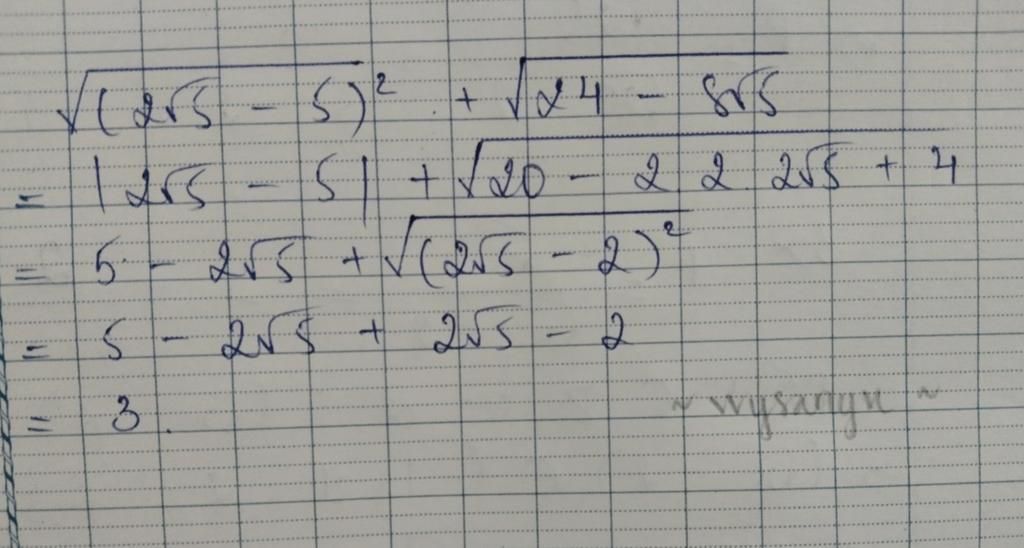 √(2√5 - 5)² + √24 - 8√5
= |2√5 - 5| + √20 - 2 2 2√5 + 4
= 5 - 2√5 + √(2√5 - 2)²
= 5 - 2√5 + 2√5 - 2
= 3.
~ wysanyu ~